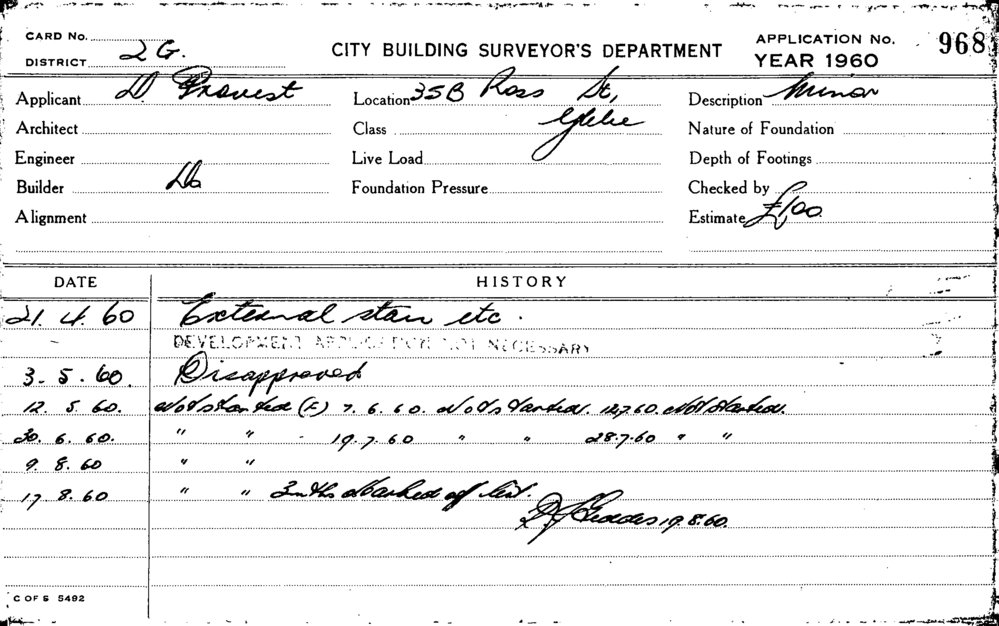 CARD No.
DISTRICT 2 G.
CITY BUILDING SURVEYOR'S DEPARTMENT
APPLICATION No. 968
YEAR 1960
Applicant D. Provest Location 35B Ross St, Description Minor
Architect Class Glebe Nature of Foundation
Engineer Live Load Depth of Footings
Builder Do Foundation Pressure Checked by
Alignment Estimate £100
DATE HISTORY
21. 4. 60 External stair etc.
DEVELOPMENT APPLICATION NOT NECESSARY
3. 5. 60. Disapproved
12. 5. 60. Not started (E) 7. 6. 60. Not started. 12.7.60. Not started.
30. 6. 60. " " 19. 7. 60 " " 28.7.60 " "
9. 8. 60 " "
17 8. 60 " " 3 mths Marked off list.
Geddes 19.8.60.
C OF S 5492